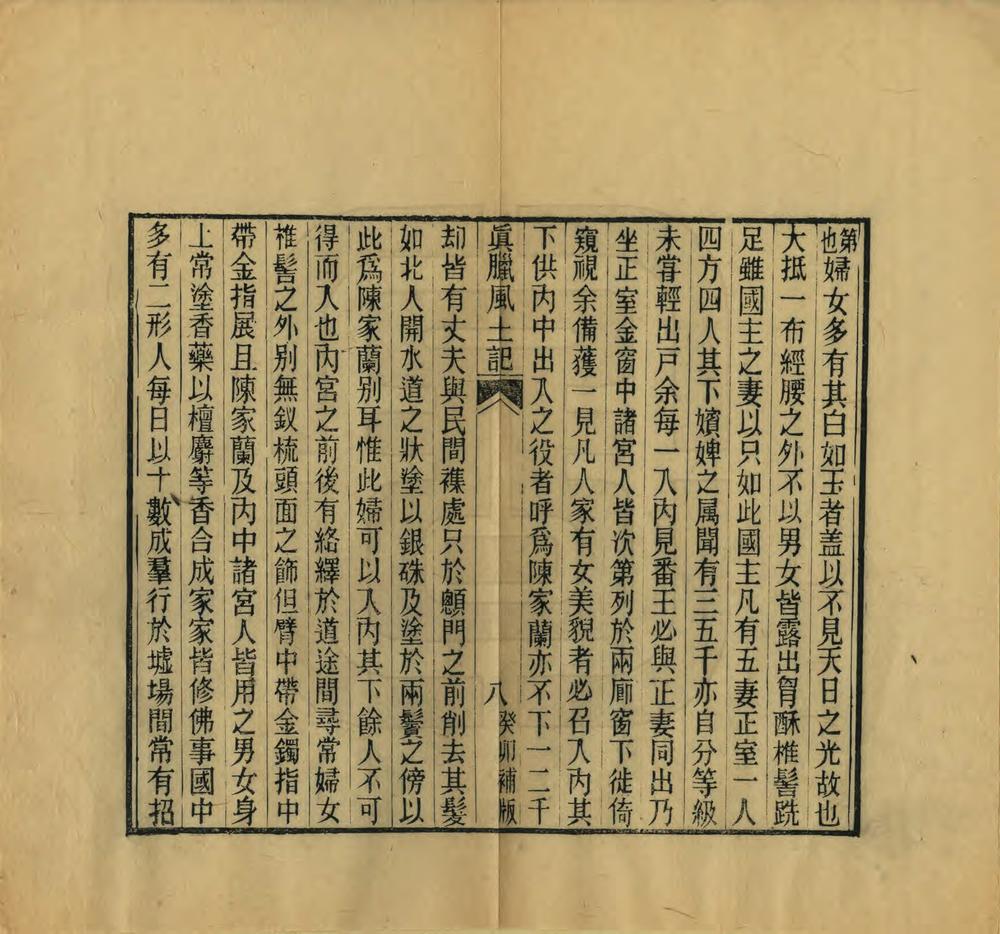 第也婦女多有其白如玉者盖以不見天日之光故也
大抵一布經腰之外不以男女皆露出胷酥椎髻跣
足雖國主之妻以只如此國主凡有五妻正室一人
四方四人其下嬪婢之属聞有三五千亦自分等級
未甞輕出戸余每一入内見番王必與正妻同出乃
坐正室金窗中諸宮人皆次第列於兩廊窗下徙倚
窺視余備獲一見凡人家有女美貌者必召入内其
下供内中出入之役者呼爲陳家蘭亦不下一二千
眞臘風土記 八 癸卯補版
却皆有丈夫與民間襍處只於顖門之前削去其髪
如北人開水道之狀塗以銀硃及塗於兩鬢之傍以
此爲陳家蘭别耳惟此婦可以入内其下餘人不可
得而入也内宮之前後有絡繹於道途間尋常婦女
椎髻之外别無釵梳頭面之飾但臂中帶金鐲指中
帶金指展且陳家蘭及内中諸宮人皆用之男女身
上常塗香藥以檀麝等香合成家家皆修佛事國中
多有二形人每日以十數成羣行於墟場間常有招